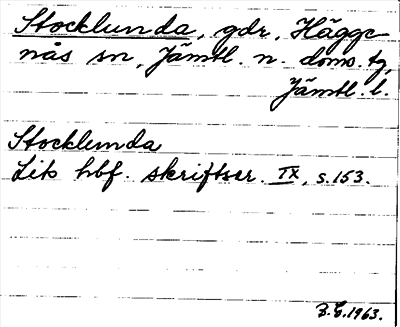 Stocklunda, gdr, Hägge-
nås sn, Jämtl. n. doms. tg,
Jämtl. l.
Stocklunda
Lits hbf. skriftser. IX, s. 153.
B.E. 1963.